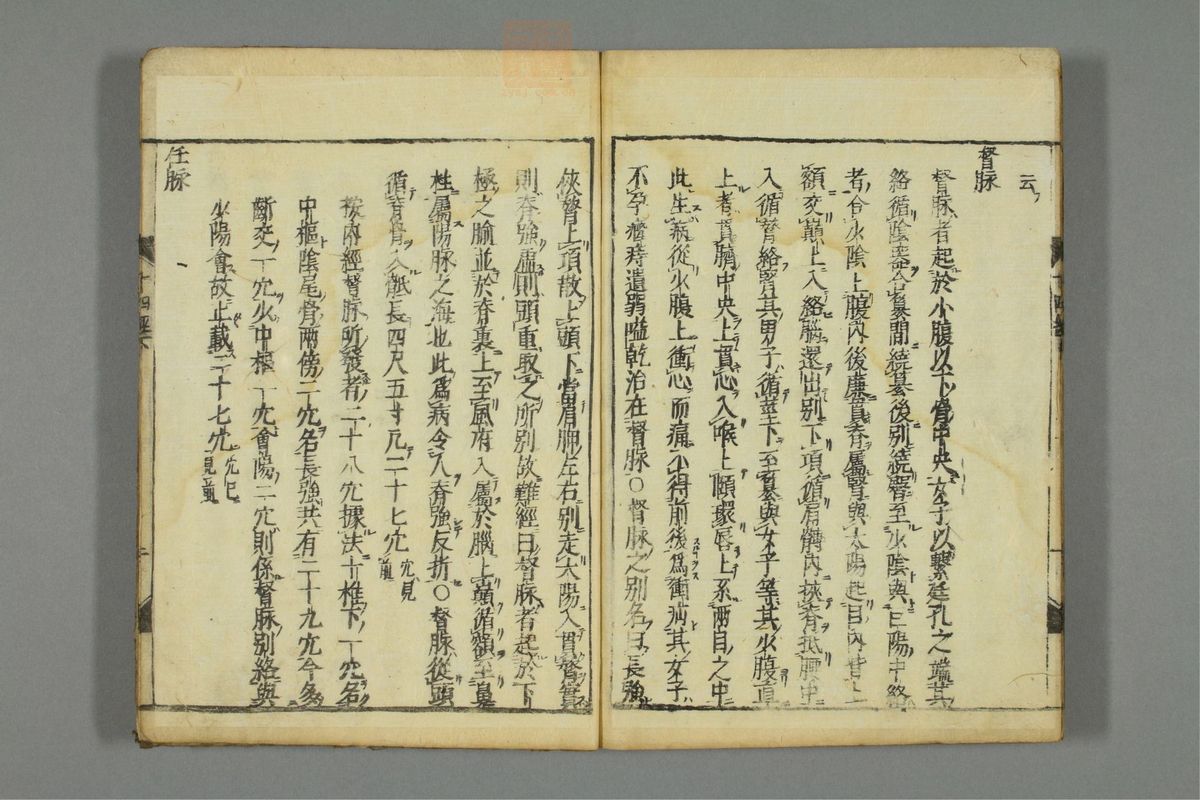 云
督脉
督脉者起於小腹以下骨中央女子以繫廷孔之端其
絡循陰器合纂間繞纂後別繞臀至少陰與巨陽中絡
者合少陰上股內後廉貫脊屬腎與太陽起目內眥上
額交巔上入絡腦還出別下項循肩髆內挾脊抵腰中
入循膂絡腎其男子循莖下至纂與女子等其少腹直
上者貫臍中央上貫心入喉上頤環唇上系兩目之中
此生病從少腹上衝心而痛不得前後為衝疝其女子
不孕癃痔遺溺嗌乾治在督脉○督脉之別名曰長強
俠膂上項散上頭下當肩胛左右別走太陽入貫膂實
則脊強虛則頭重取之所別故難經曰督脉者起於下
極之腧並於脊裏上至風府入屬於腦上巔循額至鼻
柱屬陽脉之海也此為病令人脊強反折○督脉從頭
循脊骨入骶長四尺五寸凡二十七穴穴見前
按內經督脉所發者二十八穴據法十椎下一穴名
中樞陰尾骨兩傍二穴名長強共有二十九穴今多
齗交一穴少中樞一穴會陽二穴則係督脉別絡與
少陽會故止載二十七穴穴已見前
任脉
十四經